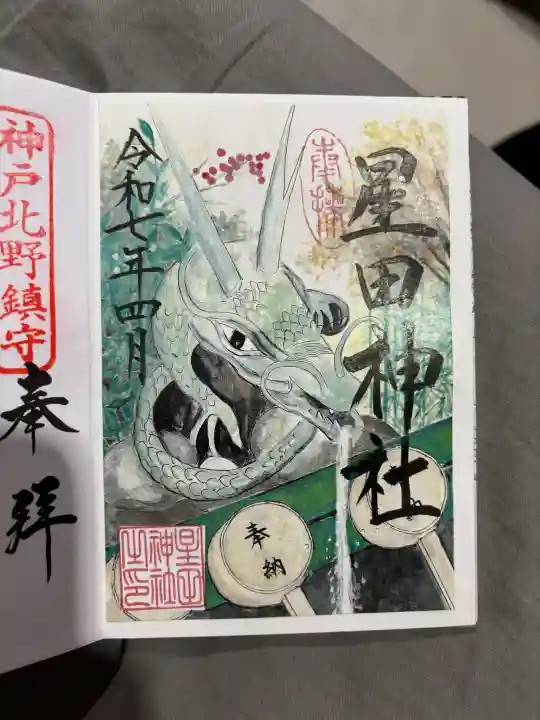 奉拝
星田神社
令和七年四月
星田
神社
之印
奉納
神戸北野鎮守
奉拝